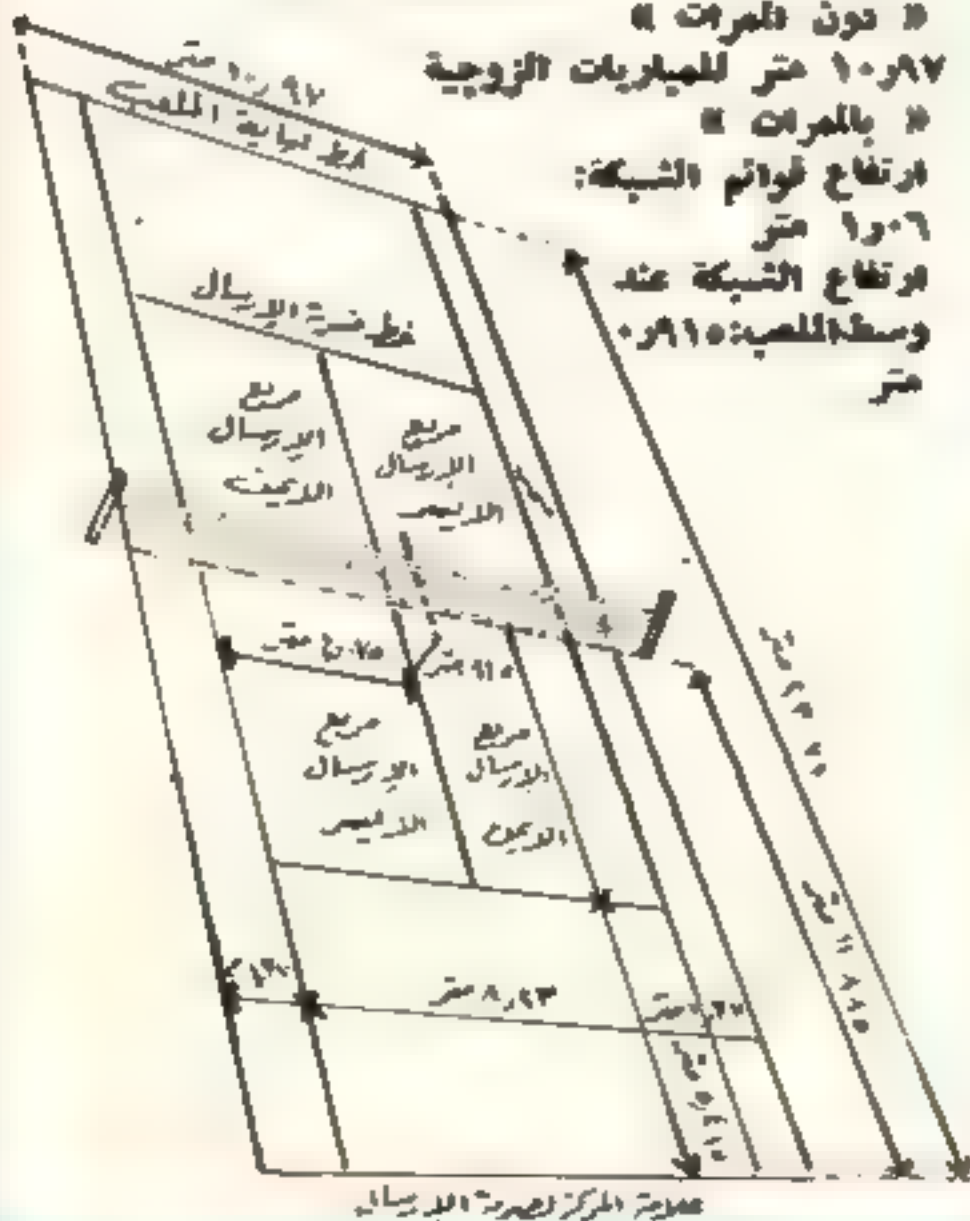 « دون الممرات »
١٠٫٩٧ متر للمباريات الزوجية
« بالممرات »
ارتفاع قوائم الشبكة:
١٫٠٦ متر
ارتفاع الشبكة عند
وسط الملعب: ٠٫٩١٥
متر
١٠٫٩٧ متر
خط نهاية الملعب
خط ضربة الإرسال
مربع
الإرسال
الأيمن
مربع
الإرسال
الأيسر
متر
٩١٥ متر
مربع
الإرسال
الأيسر
مربع
الإرسال
الأيمن
٨٫٢٣ متر
متر
متر
متر
متر
علامة المركز لضربة الإرسال